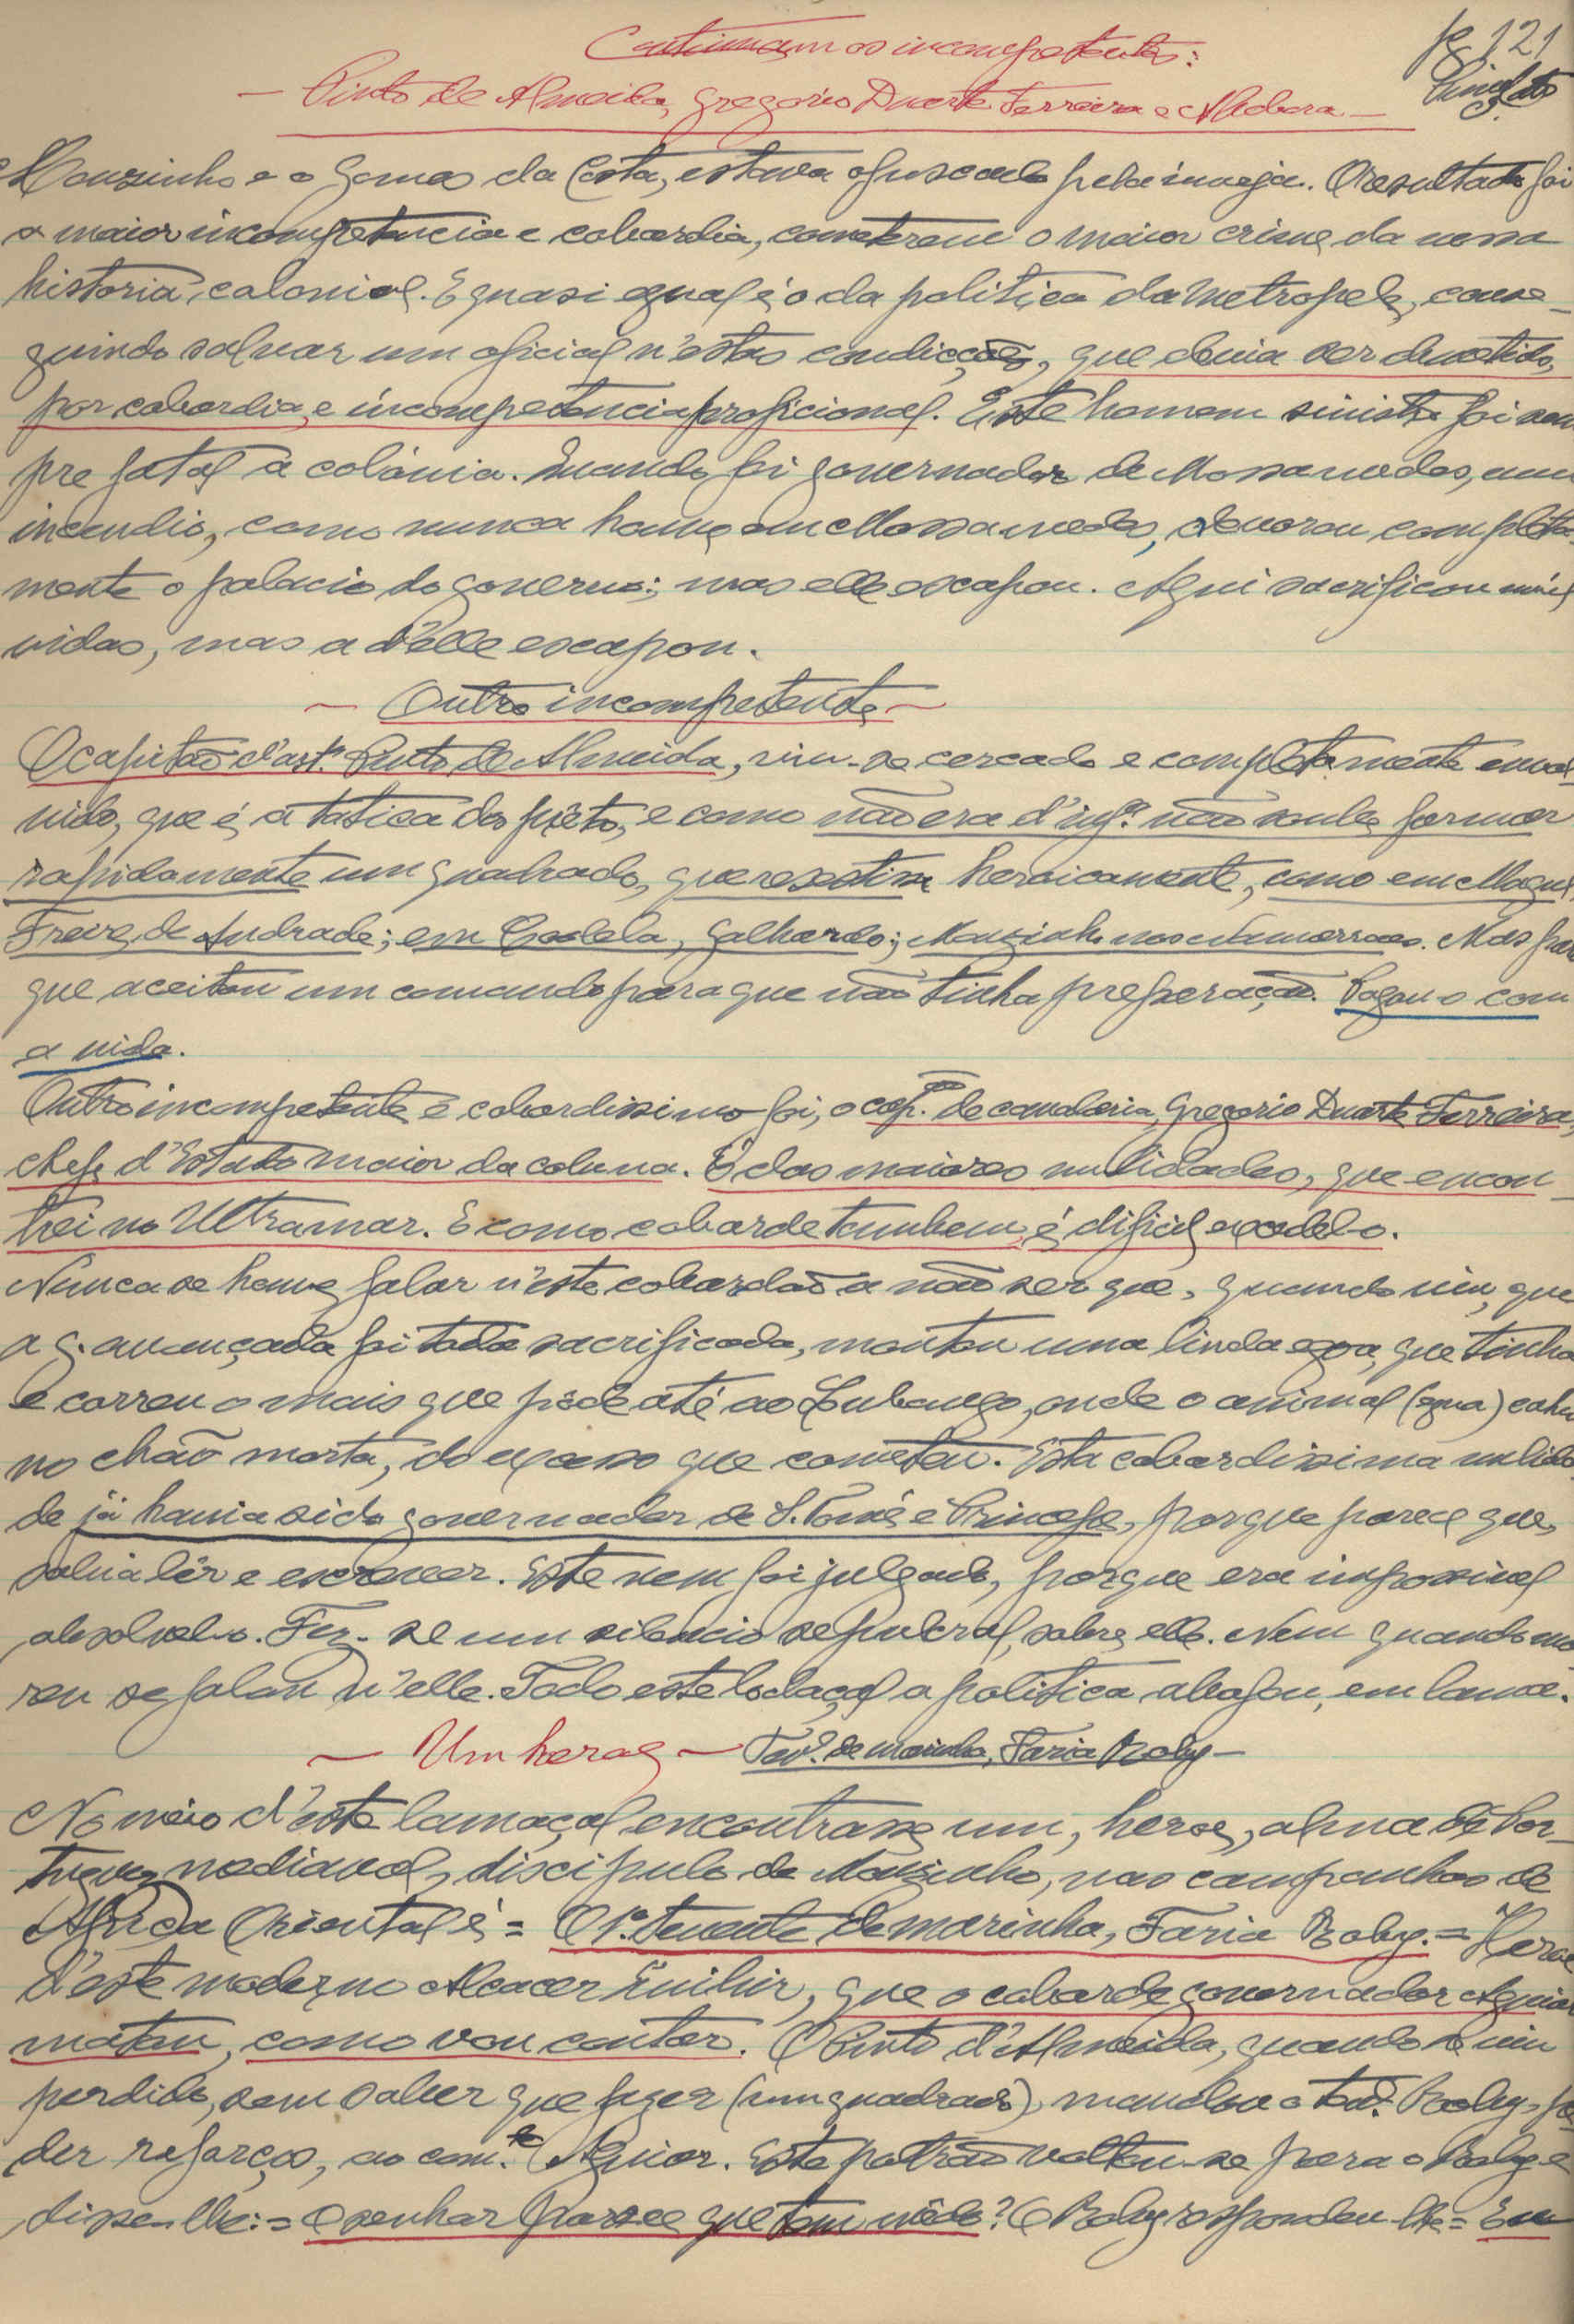 Continuam os incompetentes:
fg 121
— Pinto de Almeida, Gregorio Duarte Ferreira e
Mousinho e o Gomes da Costa, estava ofuscado pela inveja. O resultado foi
a maior incompetencia e cobardia, cometerem o maior crime da nossa
historia, colonial. E quasi egual é o da politica da Metropole, conse-
guindo salvar um oficial n'estas condicções, que devia ser demetido,
por cobardia, e incompetencia proficional. Este homem sinistro foi sem
pre fatal à colónia. Quando foi governador de Mossamedes, um
incendio, como nunca houve em Mossamedes, devorou completa-
mente o palacio do governo; mas elle escapou. Aqui sacrificou
vidas, mas a d'elle escapou.
— Outro incompetente —
O capitão d'art.ª Pinto de Almeida, viu-se cercado e completamente envol
vido, que é a tatica do prêto, e como não era d'inf.ª não soube formar
rapidamente um quadrado, que resestisse heroicamente, como em Magul,
Freire de Andrade; em Coolela, Galhardo; Mousinho nos Namarraes. Mas por
que aceitou um comando para que não tinha preparação. Pagou-o com
a vida.
Outro incompetente e cobardissimo foi, o cap.ão de cavalaria, Gregorio Duarte Ferreira,
chefe d'Estado maior da coluna. É das maiores nulidades, que encon-
trei no Ultramar. E como cobarde tambem, é dificil excedel-o.
Nunca se houve falar n'este cobardão a não ser que, quando viu, que
a g. avançada foi toda sacrificada, montou uma linda egoa, que tinha
e correu o mais que pôde até ao Lubango, onde o animal (egua) cahiu
no chão morta, do excesso que cometeu. Esta cobardissima nulida
de já havia sido governador de S. Tomé e Principe, porque parece que,
sabia lêr e escrever. Este nem foi julgado, porque era impossivel
absolvel-o. Fez-se um silencio sepulcral, sobre elle. Nem quando mor
reu se falou n'elle. Todo este lodaçal a politica abafou, em lama.
— Um heroe — Ten.te de marinha, Faria Roby —
No meio d'este lamaçal encontra-se um, heroe, alma de Por-
tuguez medieval, discipulo de Mousinho, nas campanhas de
Africa Oriental é = O 1º tenente de marinha, Faria Roby. = Heroe
d'este moderno Alcacer Quibir, que o cobarde governador Aguiar
matou, como vou contar. O Pinto d'Almeida, quando se viu
perdido, sem saber que fazer (um quadrado), mandou o ten.te Roby, pe
der reforços, ao com.te Aguiar. Este poltrão voltou-se para o Roby e
disse-lhe: = O senhor parece que tem mêdo? O Roby respondeu-lhe = Eu